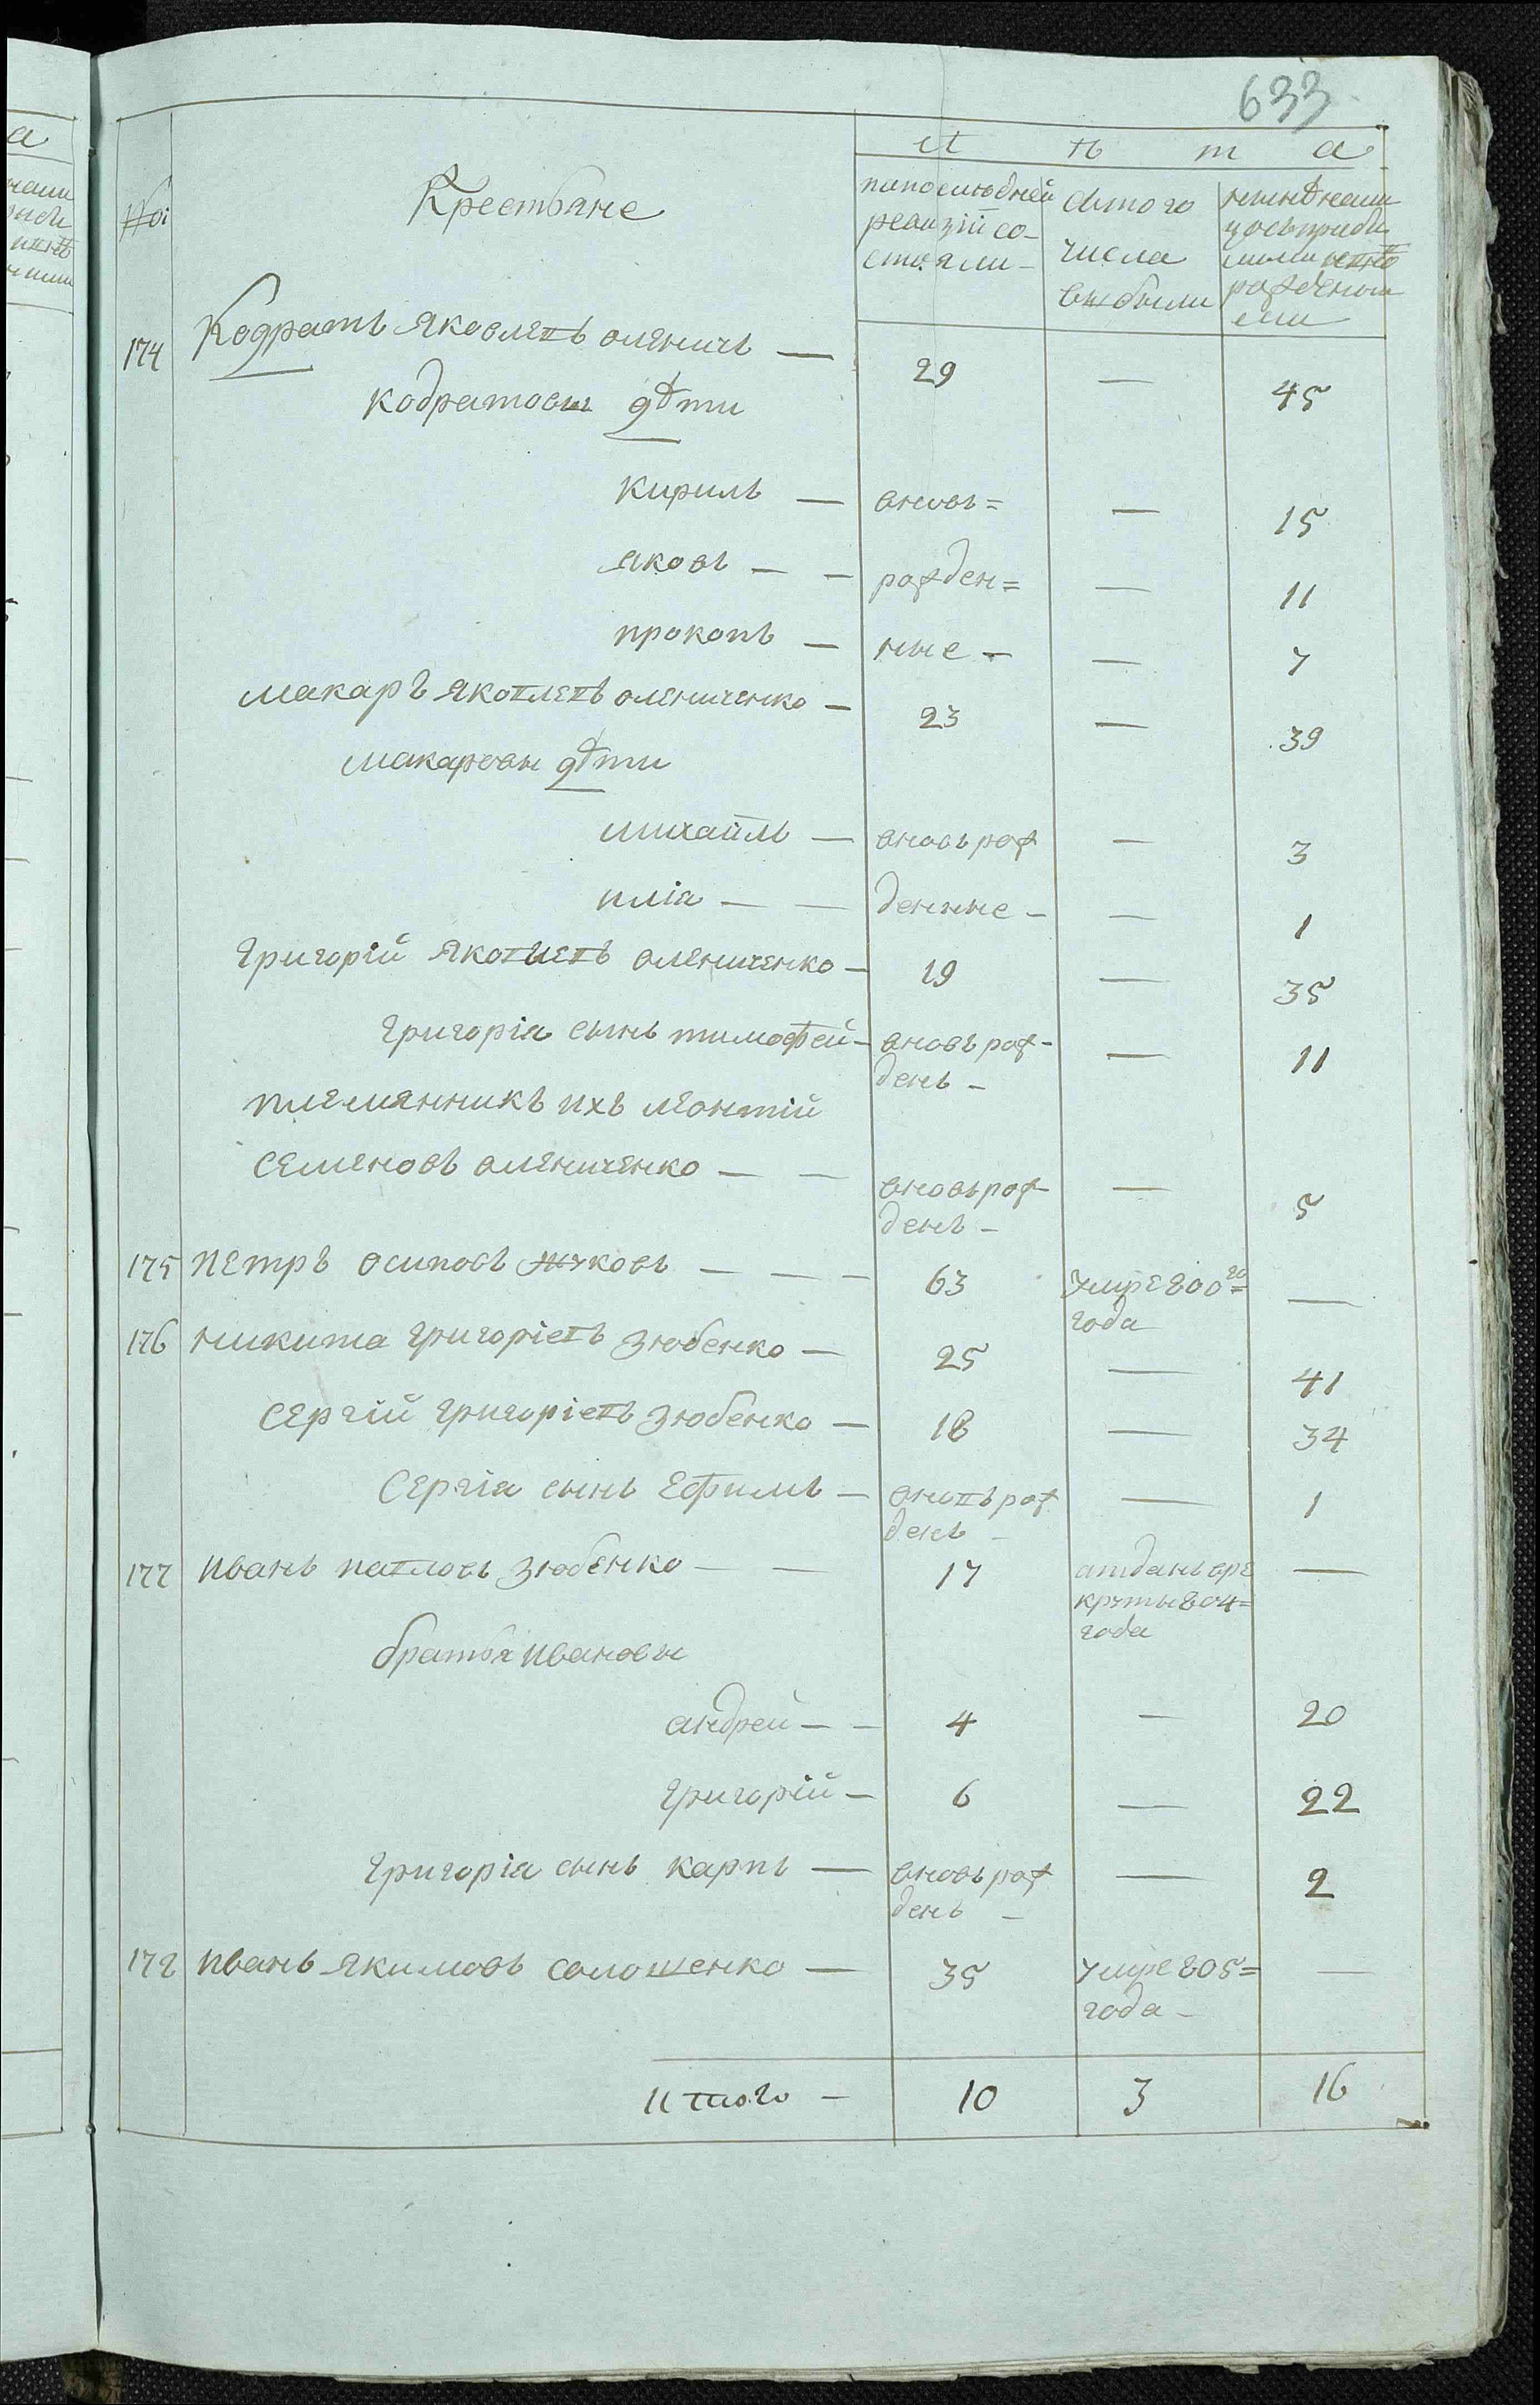 633
Л ѣ т а
№оі
Крестьяне
попоследней
ревизіи со-
стояли-
Стого
числа
выбыли
ныне на ли
цо сприбы
лыми и не
рожденны
ми
174 Кодратъ яковлевъ оленичь — 29 — 45
кодратовы дѣти
кирилъ — вновъ= — 15
яковъ — — рожден= — 11
прокопъ — ные - — 7
макаръ яковлевъ олениченко — 23 — 39
макаровы дѣти
михайлъ — вновь рож — 3
илія — — денные - — 1
григорій яковлевъ олениченко — 19 — 35
григорія сынъ тимофей — вновь рож- — 11
денъ -
племянникъ ихъ леонтій
семеновъ олениченко — — вновь рож — 5
денъ -
175 петръ осиповъ жуковъ — — — 63 умре 800го= —
года
176 никита григоріевъ зюбенко — 25 — 41
сергій григоріевъ зюбенко — 18 — 34
Сергія сынъ ефимъ — вновь рож — 1
денъ -
177 иванъ павловъ зюбенко — — 17 отданъ врε —
круты 804=
года
братья ивановы
андрей — — 4 — 20
григорій — 6 — 22
григорія сынъ карпъ — вновь рож — 2
денъ -
178 иванъ якимовъ солошенко — 35 умре 805= —
года -
Итого — 10 3 16